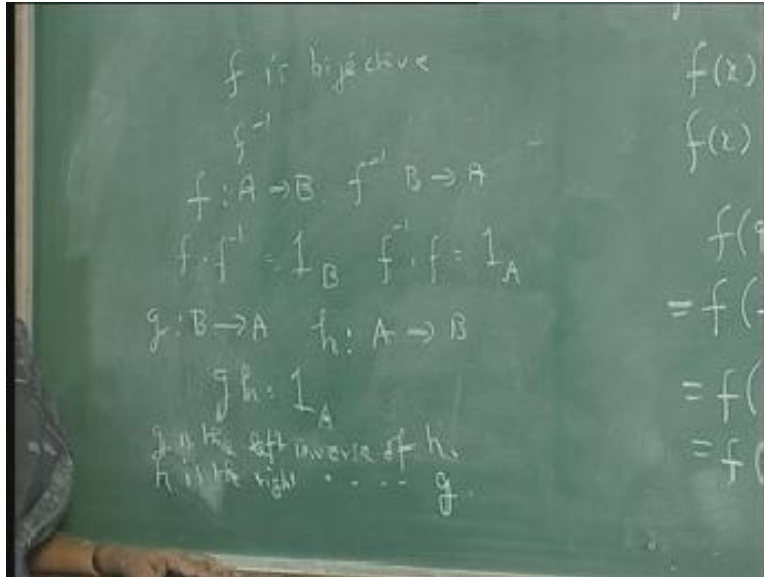 f is bijective
f⁻¹
f : A → B f⁻¹ B → A
f · f⁻¹ = 1_B f⁻¹ · f = 1_A
g : B → A h : A → B
g h = 1_A
g is the left inverse of h.
h is the right " " " " g.
f(x)
f(x)
f(
= f(
= f(
= f(